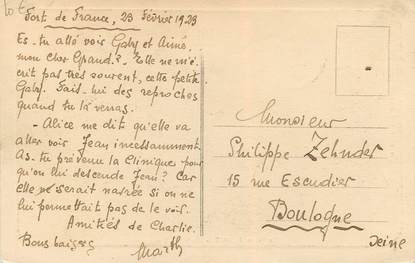 Fort de France, 23 Février 1923
Es-tu allé voir Gaby et Aimé,
mon cher Gpaud? - Elle ne m'é-
crit pas très souvent, cette petite
Gaby. Fais-lui des reproches
quand tu la verras.
- Alice me dit qu'elle va
aller voir Jean incessamment.
As-tu prévenu la Clinique pour
qu'on lui descende Jean? Car
elle serait navrée si on ne
lui permettait pas de le voir.
Amitiés de Charlie.
Bons baisers
Marth
Monsieur
Philippe Zehnder
15 rue Escudier
Boulogne
Seine